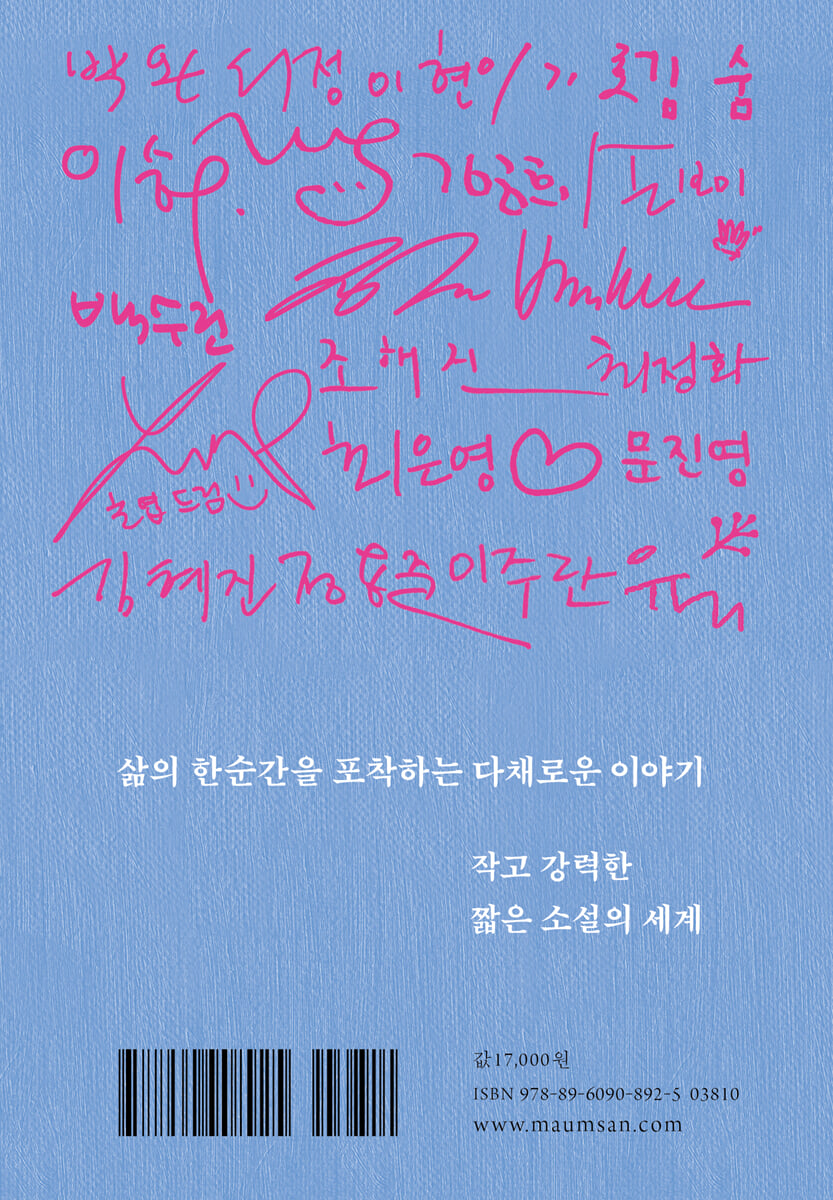 박완서 정이현 이기호 김숨
이승우. 김금희
백수린
조해진 최정화
손엽 드림
최은영 문진영
김혜진 정용준 이주란
삶의 한순간을 포착하는 다채로운 이야기
작고 강력한
짧은 소설의 세계
값17,000원
ISBN 978-89-6090-892-5 03810
www.maumsan.com